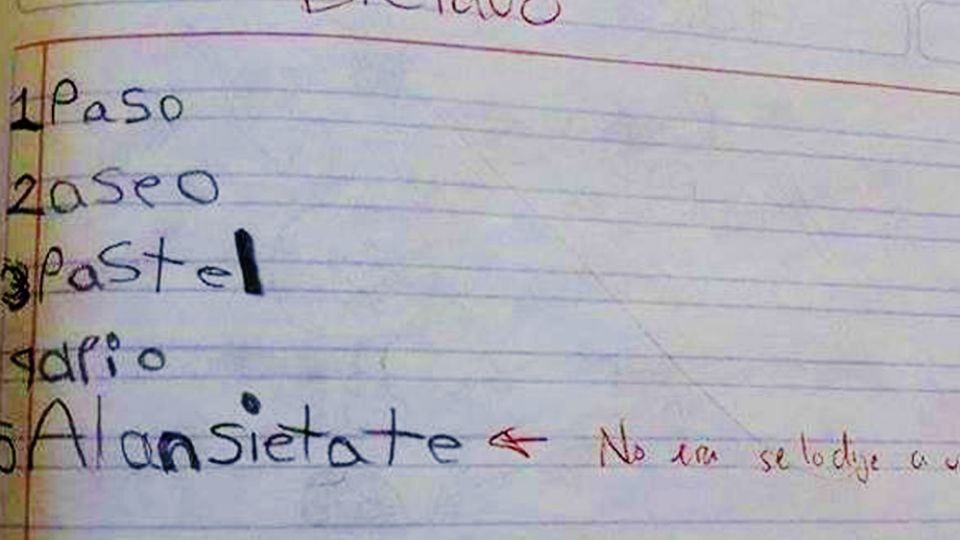 1 Paso
2 aseo
3 Pastel
4 apio
5 Alansietate ← No era se lo dije a